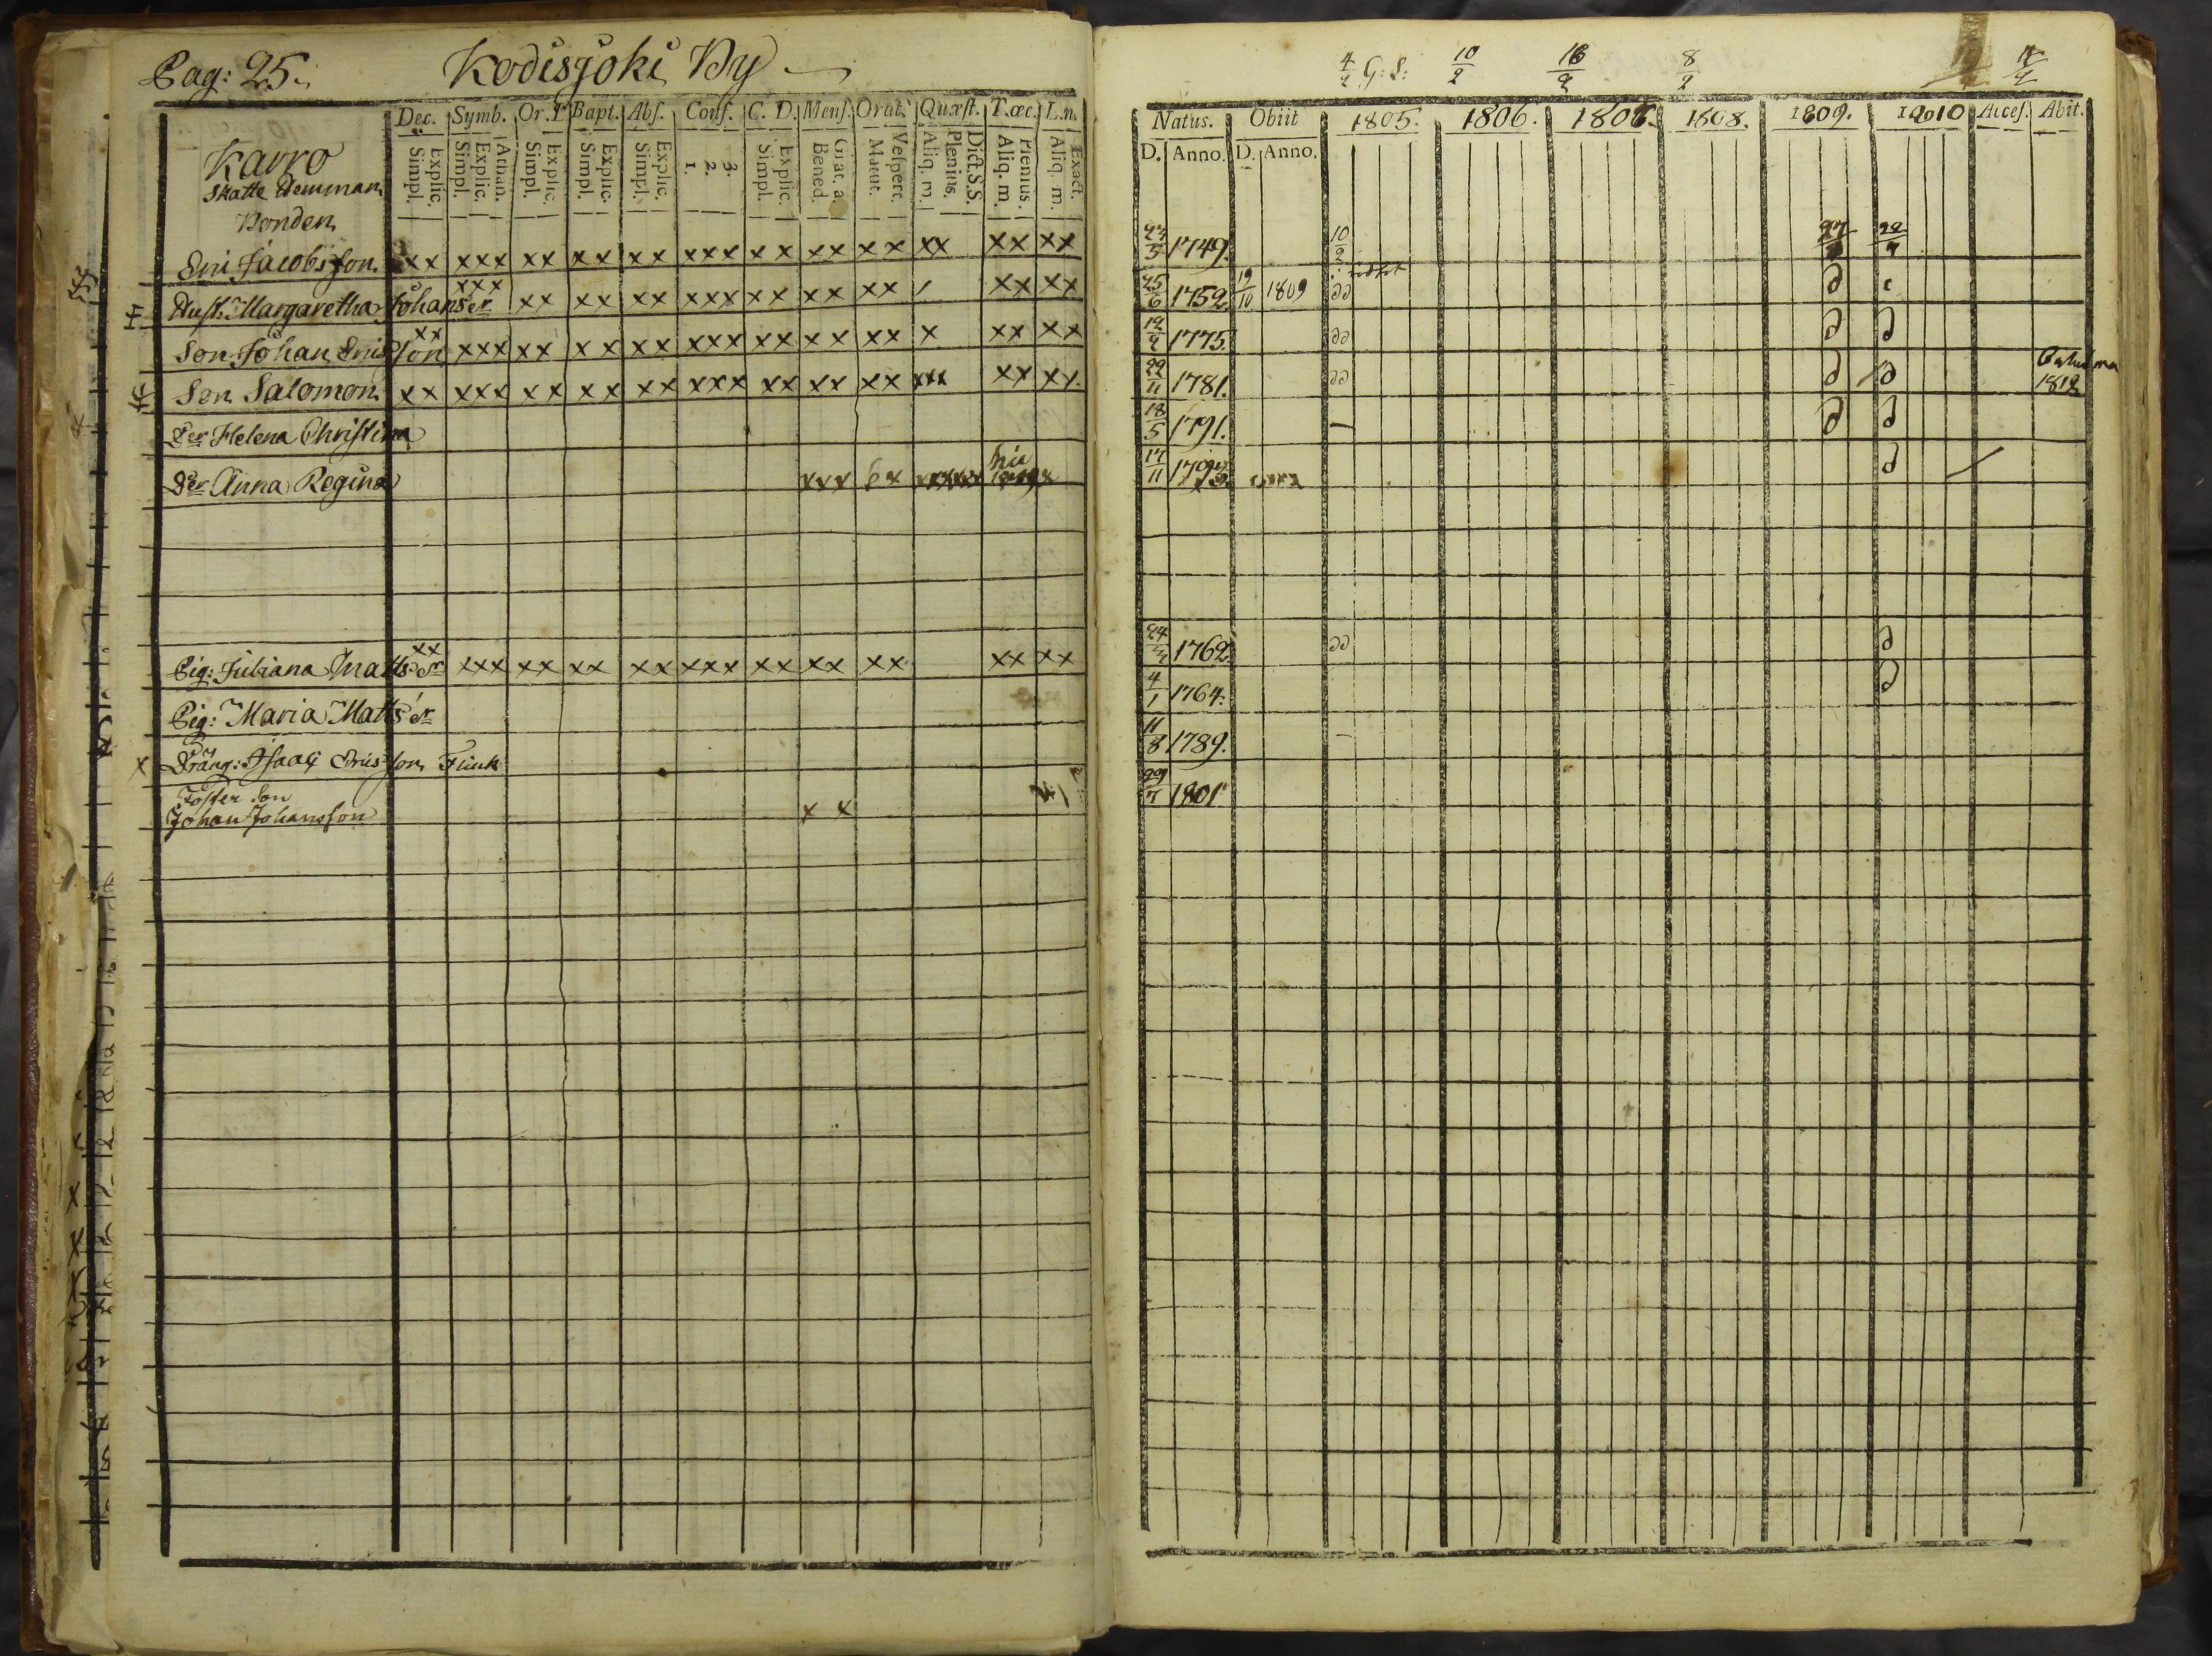 Pag: 25. Kodisjoki By
Dec. Symb. Or. D. Bapt. Abs. Conf. C. D. Mens. Orat. Quæst. T. œc. L. n.
Explic. Simpl. Athan. Explic. Simpl. Explic. Simpl. Explic. Simpl. Explic. Simpl. 3. 2. 1. Explic. Simpl. Grat. a. Bened. Vespert. Matut. Dict. S.S. Plenius. Aliq. m. Plenius. Aliq. m. Exact. Aliq. m.
Karro
Skatte Hemman
Bonden
Eric Jacobsson xx xxx xx xx xx xxx xx xx xx xx xx xx
Hust. Margaretha Johansdr xxx xx xx xx xxx xx xx xx / xx xx
Son Johan Ericsson xx xxx xx xx xx xxx xx xx xx x xx xx
Son Salomon xx xxx xx xx xx xxx xx xx xx xxx xx xx
Der Helena Christina
Der Anna Regina
Pig: Juliana Mattsdr xx xxx xx xx xx xxx xx xx xx xx xx
Pig: Maria Mattsdr
Dräng: Isaac Ericsson Flink
Foster Son
Johan Johansson x x
4/2 G: S: 10/2 16/2 8/2
Natus. Obiit 1805. 1806. 1807. 1808. 1809. 1810 Acces. Abit.
D. Anno. D. Anno.
1749. 10/2 27
25/6 1752 19/10 1809
1775
22/11 1781. 1812
18/5 1791.
17/11 1795
24 1762
4/1 1764.
11/8 1789.
29/7 1801